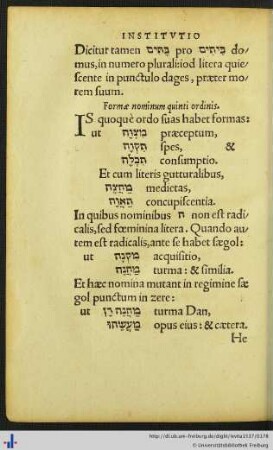 INSTITVTIO
Dicitur tamen בָּתִּים pro בֵּיתִים do-
mus, in numero plurali: iod litera quie-
scente in punctulo dages, præter mo-
rem suum.
Formæ nominum quinti ordinis.
IS quoquè ordo suas habet formas:
ut מִצְוָה præceptum,
תִּקְוָה spes, &
תִּכְלָה consumptio.
Et cum literis gutturalibus,
מֶחֱצָה medietas,
תַּאֲוָה concupiscentia.
In quibus nominibus ה non est radi-
calis, sed fœminina litera. Quando au-
tem est radicalis, ante se habet sægol:
ut מִקְנֶה acquisitio,
מַחֲנֶה turma: & similia.
Et hæc nomina mutant in regimine sæ
gol punctum in zere:
ut מַחֲנֵה דָן turma Dan,
מַעֲשֵׂהוּ opus eius: & cætera.
He
http://dl.ub.uni-freiburg.de/diglit/
© Universitätsbibliothek Freiburg